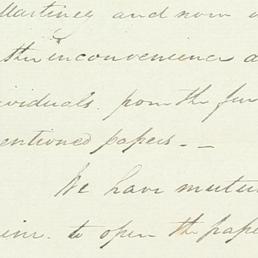 Martinez and now
the inconvenience
dividuals from the fur
entioned papers. _
We have mutu
to open the pape